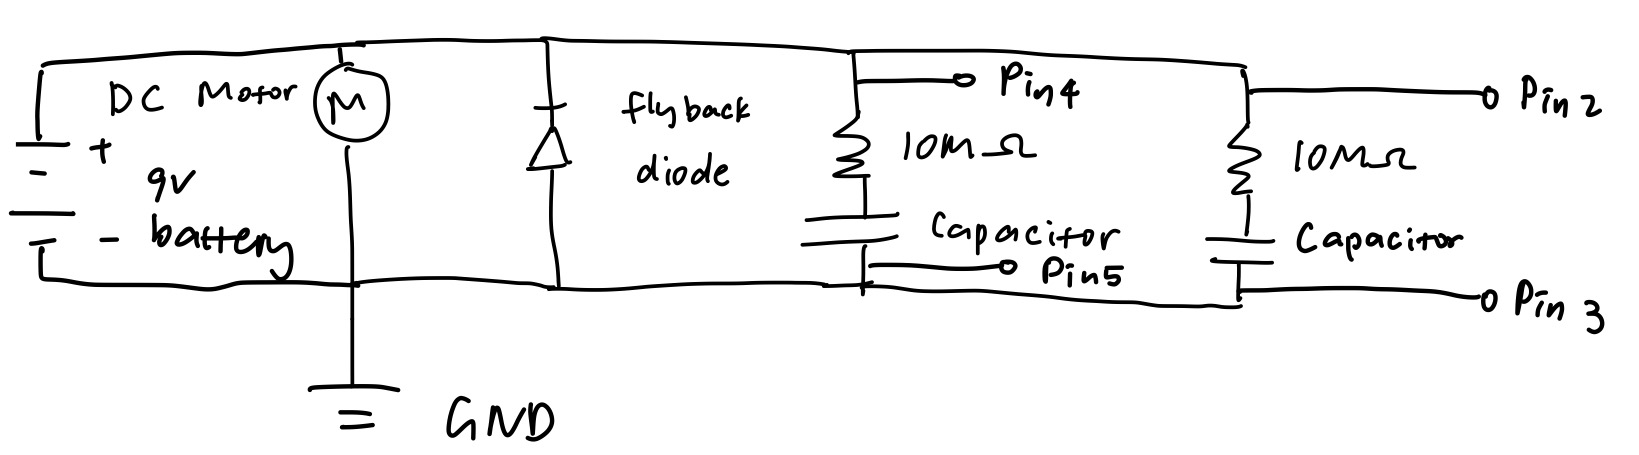 DC Motor
M
+
9v
- battery
flyback
diode
Pin4
10MΩ
Capacitor
Pin5
Pin 2
10MΩ
Capacitor
Pin 3
GND